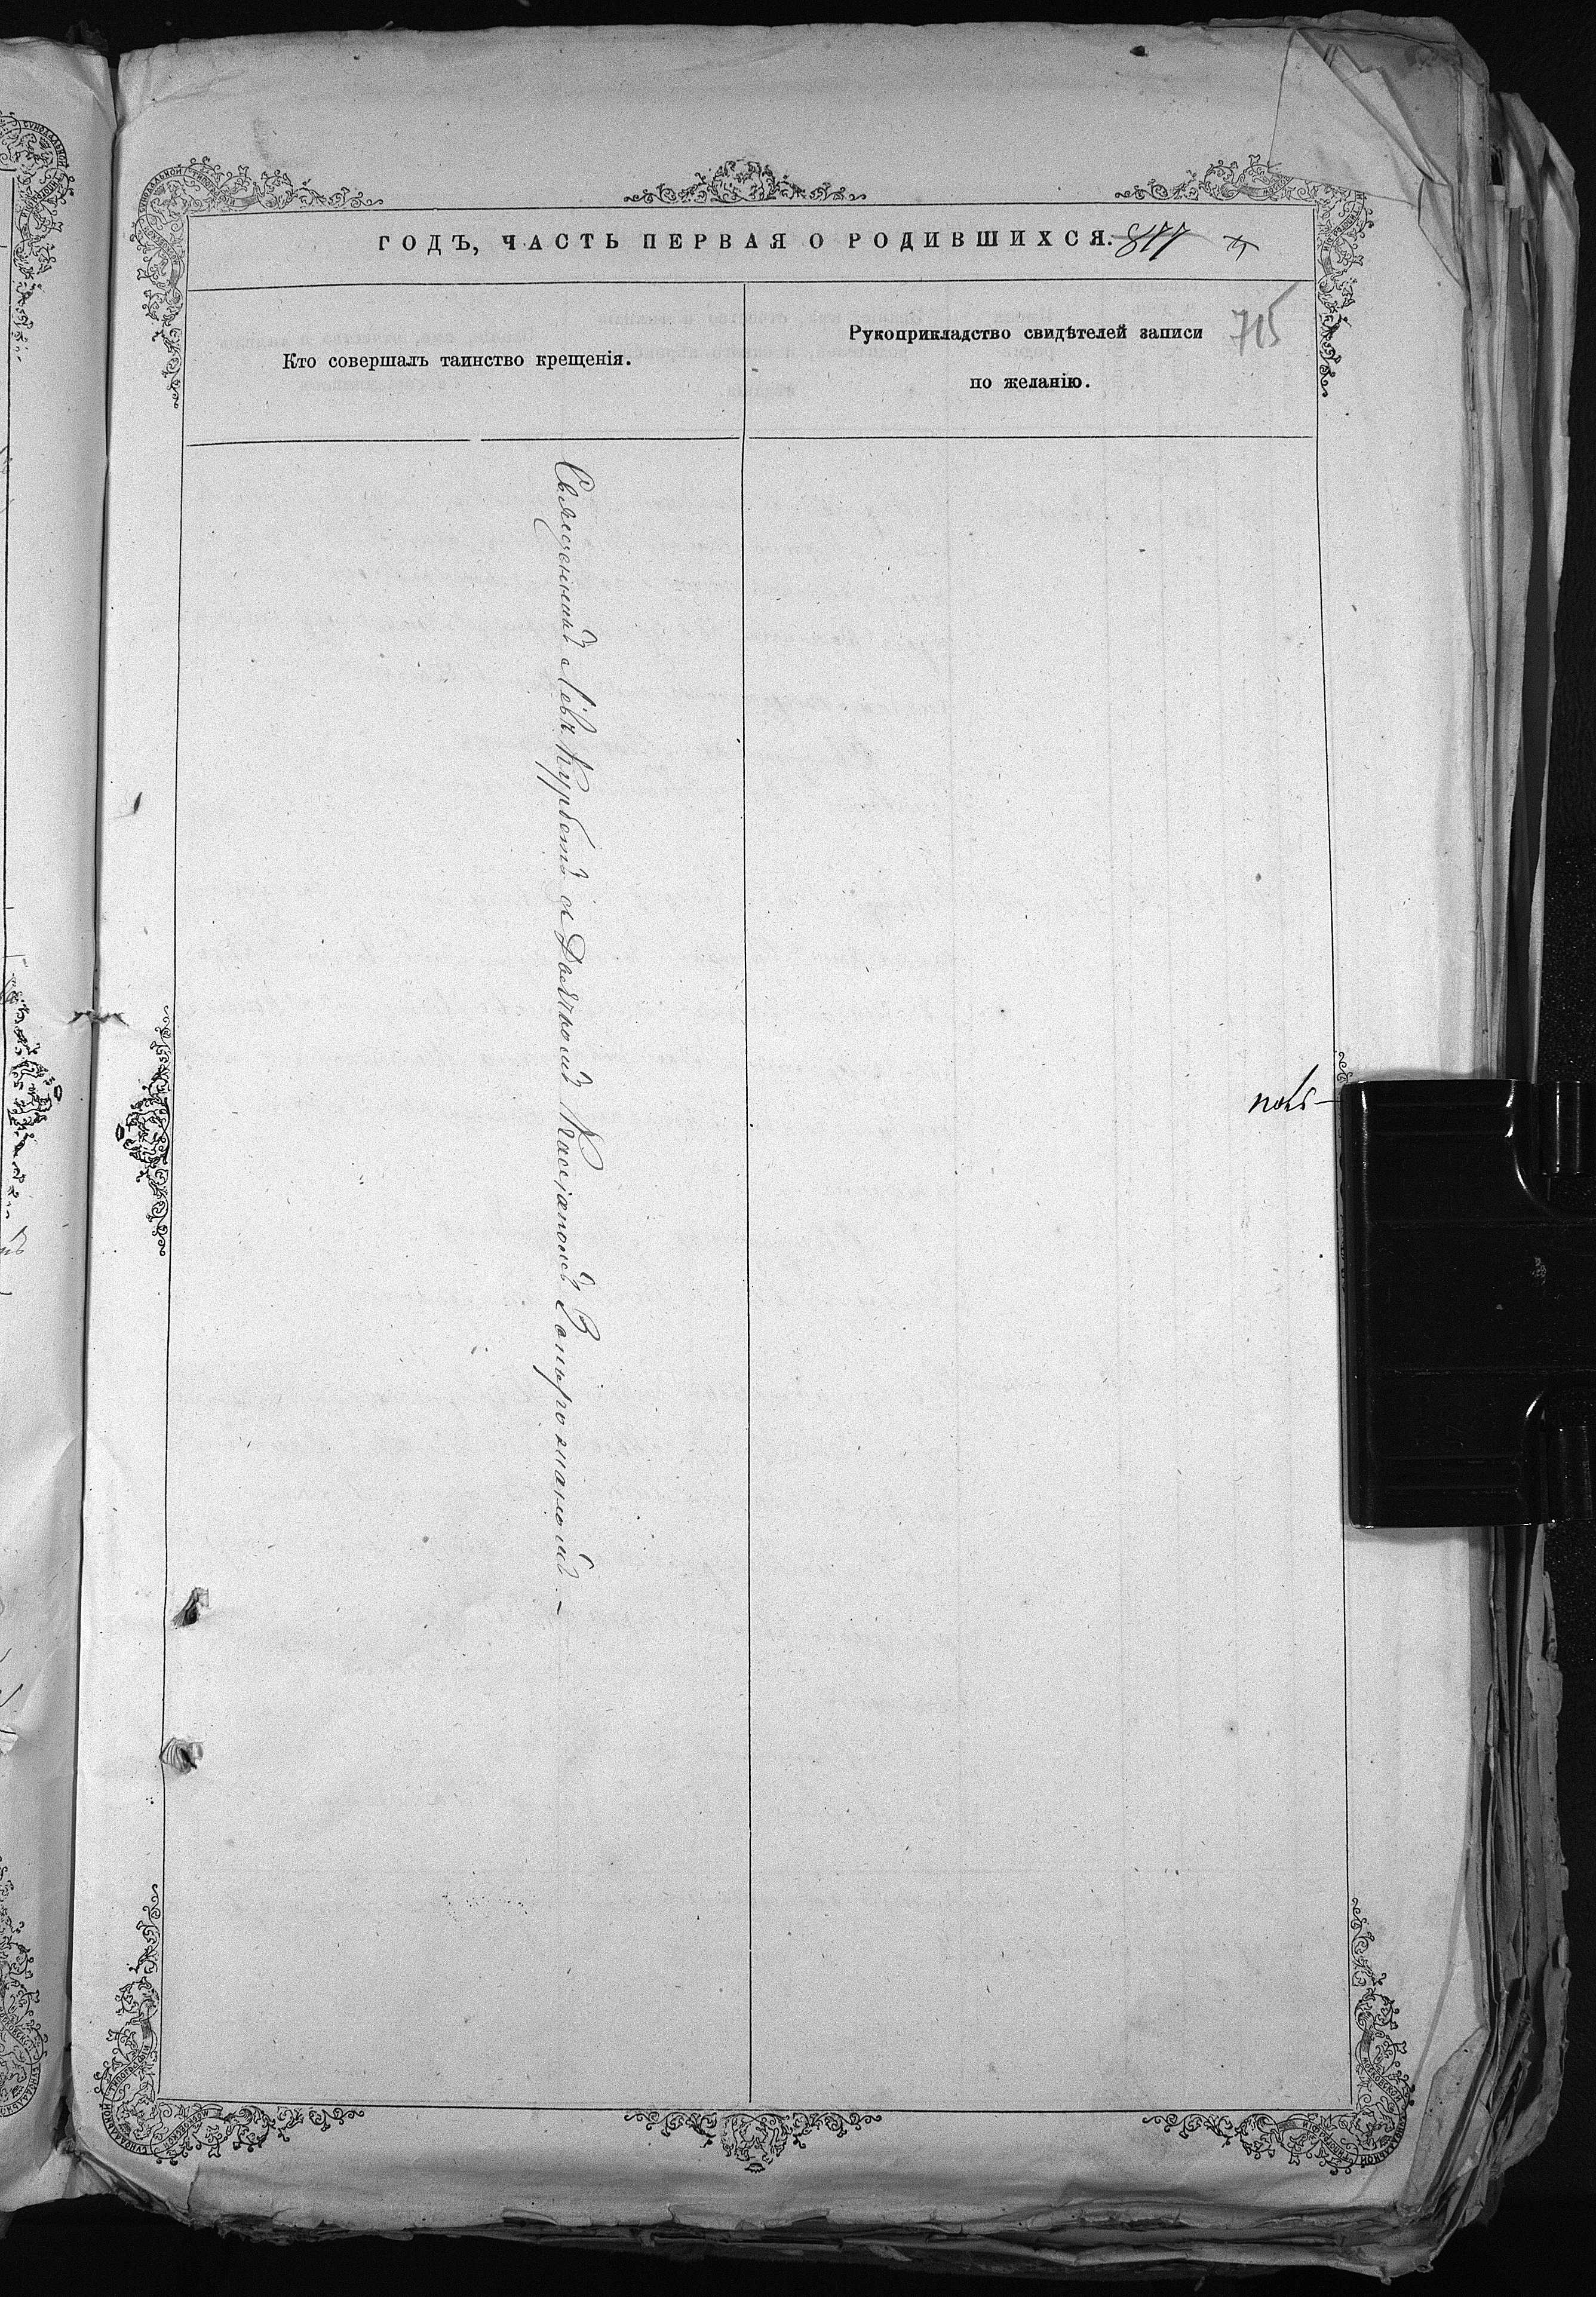 ГОДЪ, ЧАСТЬ ПЕРВАЯ О РОДИВШИХСЯ. 877
Кто совершалъ таинство крещенія.
Рукоприкладство свидѣтелей записи
по желанію.
715
Священникъ Левъ Курбетъ съ Дьячкомъ Касіяномъ Запорожаномъ. –